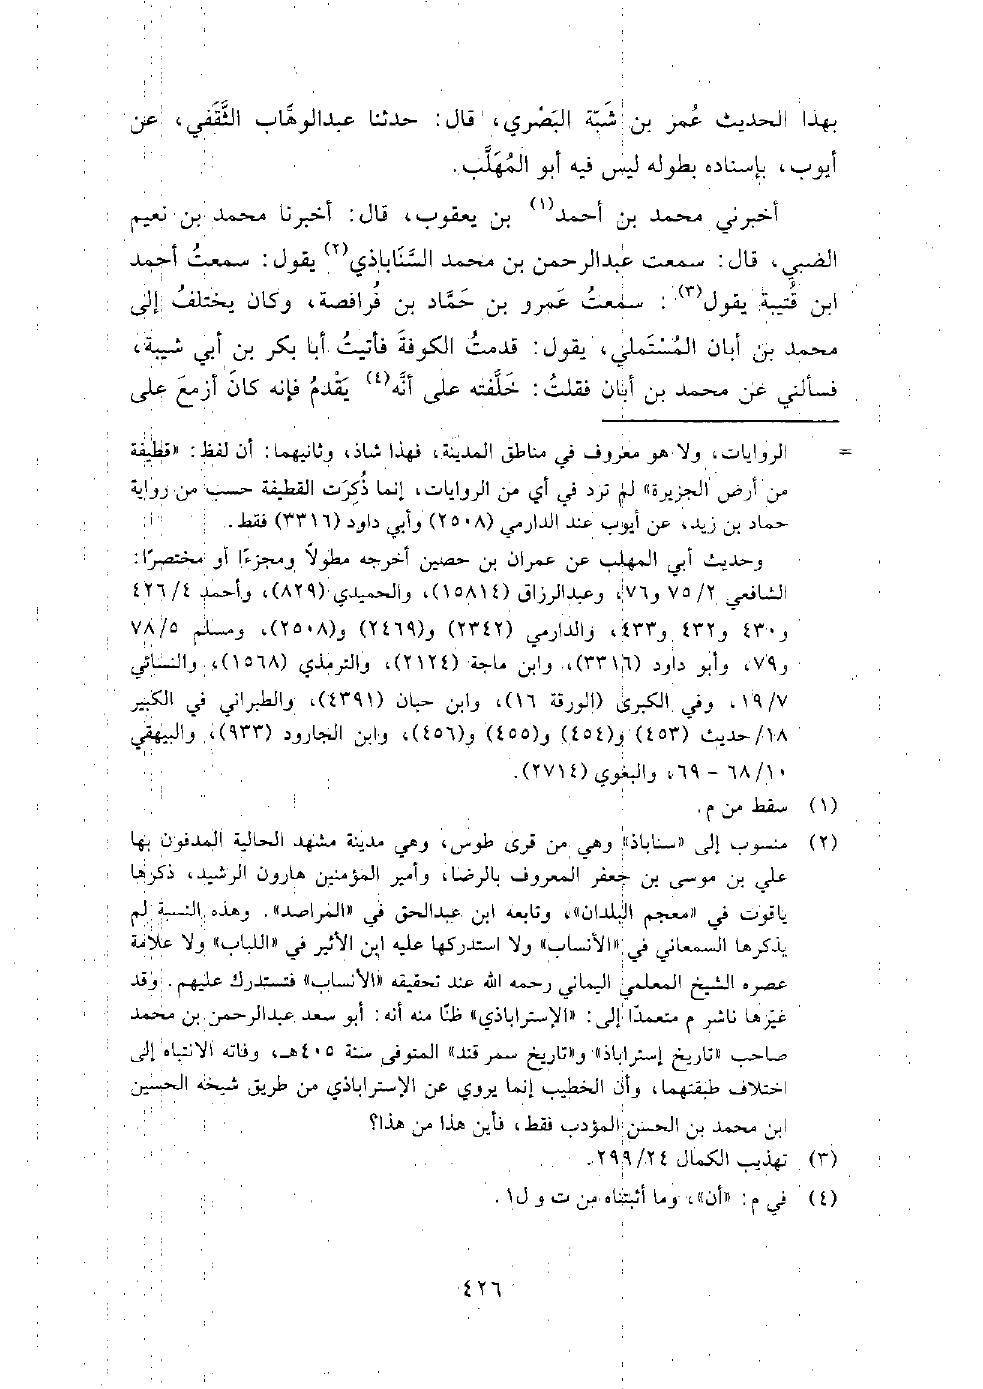 بهذا الحديث عُمر بن شَبّة البَصْري، قال: حدثنا عبدالوهَّاب الثَّقَفي، عن
أيوب، بإسناده بطوله ليس فيه أبو المُهَلَّب.
أخبرني محمد بن أحمد(١) بن يعقوب، قال: أخبرنا محمد بن نعيم
الضبي، قال: سمعت عبدالرحمن بن محمد السَّنَاباذي(٢) يقول: سمعتُ أحمد
ابن قُتيبة يقول(٣): سمعتُ عَمرو بن حَمَّاد بن فُرافصة، وكان يختلفُ إلى
محمد بن أبان المُسْتملي، يقول: قدمتُ الكوفةَ فأتيتُ أبا بكر بن أبي شيبة،
فسألني عن محمد بن أبان فقلتُ: خَلَّفته على أنَّه(٤) يَقْدمُ فإنه كانَ أزمعَ على
= الروايات، ولا هو معروف في مناطق المدينة، فهذا شاذ، وثانيهما: أن لفظ: «قطيفة
من أرض الجزيرة» لم ترد في أي من الروايات، إنما ذُكِرَت القطيفة حسب من رواية
حماد بن زيد، عن أيوب عند الدارمي (٢٥٠٨) وأبي داود (٣٣١٦) فقط.
وحديث أبي المهلب عن عمران بن حصين أخرجه مطولاً ومجزءًا أو مختصرًا:
الشافعي ٢/ ٧٥ و٧٦، وعبدالرزاق (١٥٨١٤)، والحميدي (٨٢٩)، وأحمد ٤/ ٤٢٦
و٤٣٠ و٤٣٢ و٤٣٣، والدارمي (٢٣٤٢) و(٢٤٦٩) و(٢٥٠٨)، ومسلم ٥/ ٧٨
و٧٩، وأبو داود (٣٣١٦)، وابن ماجة (٢١٢٤)، والترمذي (١٥٦٨)، والنسائي
٧/ ١٩، وفي الكبرى (الورقة ١٦)، وابن حبان (٤٣٩١)، والطبراني في الكبير
١٨/ حديث (٤٥٣) و(٤٥٤) و(٤٥٥) و(٤٥٦)، وابن الجارود (٩٣٣)، والبيهقي
١٠/ ٦٨ - ٦٩، والبغوي (٢٧١٤).
(١) سقط من م.
(٢) منسوب إلى «سناباذ» وهي من قرى طوس، وهي مدينة مشهد الحالية المدفون بها
علي بن موسى بن جعفر المعروف بالرضا، وأمير المؤمنين هارون الرشيد، ذكرها
ياقوت في «معجم البلدان»، وتابعه ابن عبدالحق في «المراصد». وهذه النسبة لم
يذكرها السمعاني في «الأنساب» ولا استدركها عليه ابن الأثير في «اللباب» ولا علامة
عصره الشيخ المعلمي اليماني رحمه الله عند تحقيقه «الأنساب» فتستدرك عليهم. وقد
غيّرها ناشر م متعمدًا إلى: «الإستراباذي» ظنًا منه أنه: أبو سعد عبدالرحمن بن محمد
صاحب «تاريخ إستراباذ» و«تاريخ سمر قند» المتوفى سنة ٤٠٥هـ، وفاته الانتباه إلى
اختلاف طبقتهما، وأن الخطيب إنما يروي عن الإستراباذي من طريق شيخه الحسين
ابن محمد بن الحسن المؤدب فقط، فأين هذا من هذا؟
(٣) تهذيب الكمال ٢٤/ ٢٩٩.
(٤) في م: «أن»، وما أثبتناه من ت و ل١.
٤٢٦